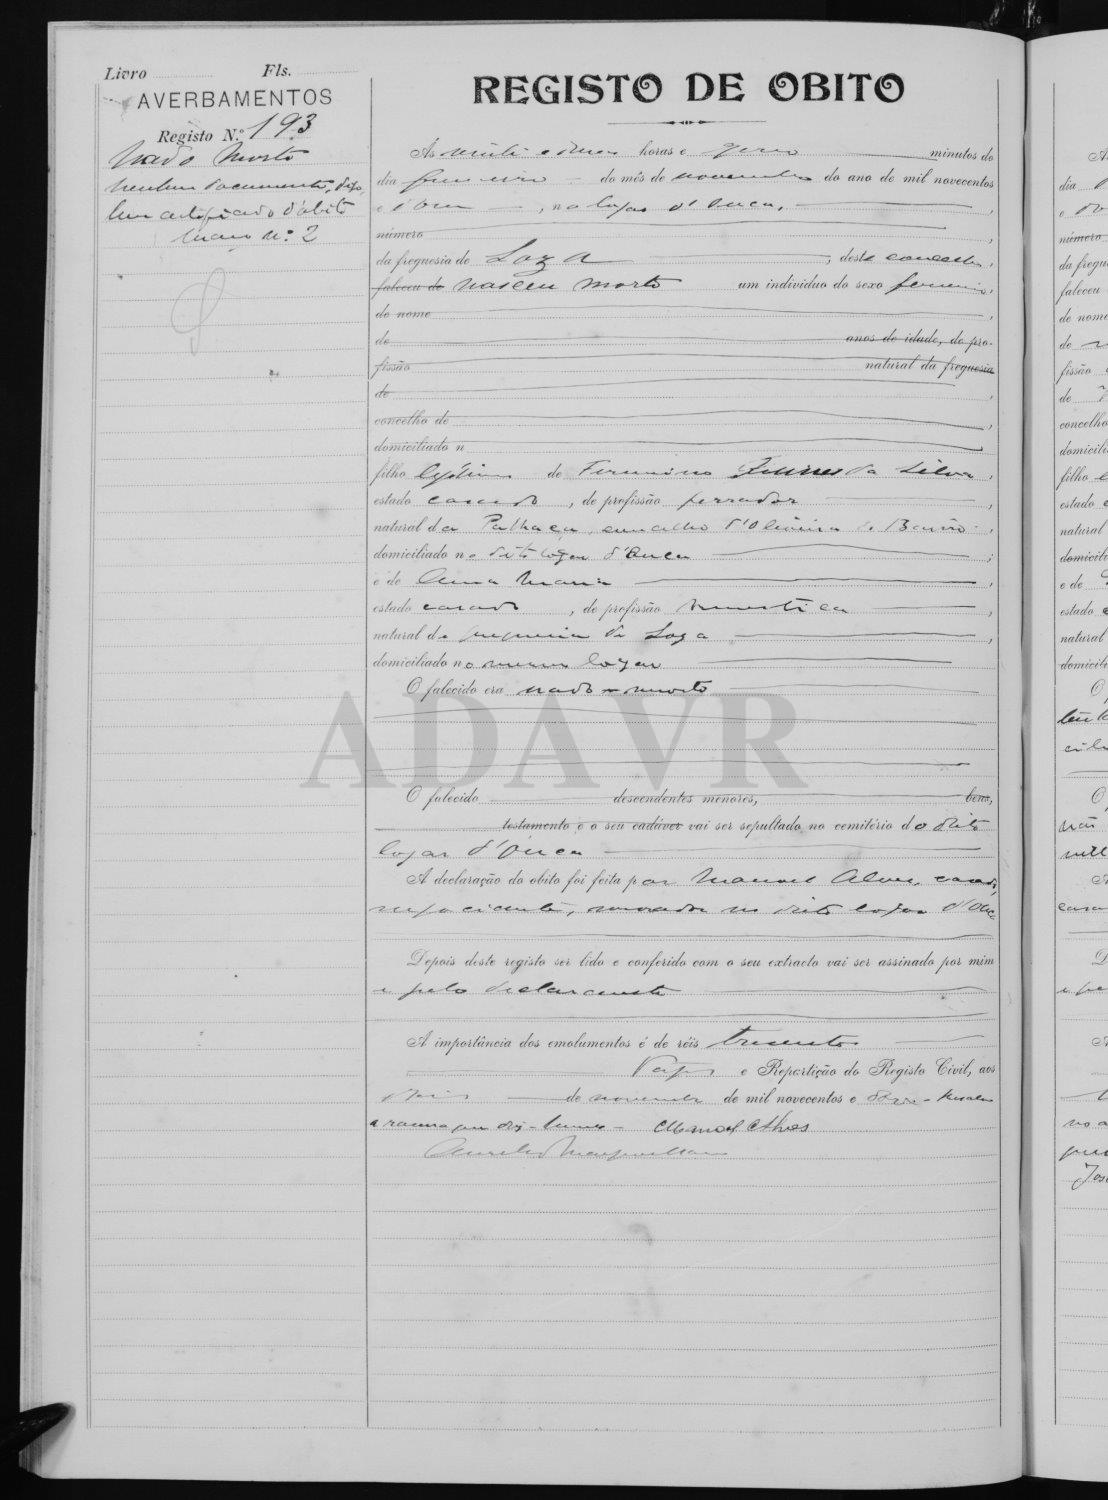 Livro Fls.
AVERBAMENTOS
Registo N.º 193
Nado Morto
Nenhum documento,
um certificado d'obito
Maço n.º 2
REGISTO DE OBITO
Ás vinte e duas horas e zero minutos do
dia primeiro do mês de novembro do ano de mil novecentos
e doze, no logar d'Ouca,
número
da freguesia de Soza, deste concelho,
faleceu de nasceu morto um individuo do sexo femenino,
de nome
de anos de idade, de pro-
fissão natural da freguesia
de
concelho de
domiciliado n
filho legitimo de Firmino da Silva,
estado casado, de profissão ferrador
natural da Palhaça, concelho d'Oliveira do Bairro
domiciliado no dito logar d'Ouca;
e de Anna Maria,
estado casado, de profissão domestica,
natural da freguesia de Soza,
domiciliado no mesmo logar
O falecido era nado-morto
O falecido descendentes menores, bens,
testamento e o seu cadáver vai ser sepultado no cemitério do dito
logar d'Ouca
A declaração do obito foi feita por Manoel Alves, casado,
negociante, morador no dito logar d'Ouca
Depois deste registo ser lido e conferido com o seu extracto vai ser assinado por mim
e pelo declarante
A importância dos emolumentos é de réis trezentos
Vagos e Repartição do Registo Civil, aos
dois de novembro de mil novecentos e doze - Resalvo
a rasura que diz -
Manoel Alves
ADAVR
Livro
dia
e
número
da fregu
faleceu
de nome
de
fissão
de
concelho
domicili
filho
estado
natural
domicili
e de
estado
natural
domicili
O